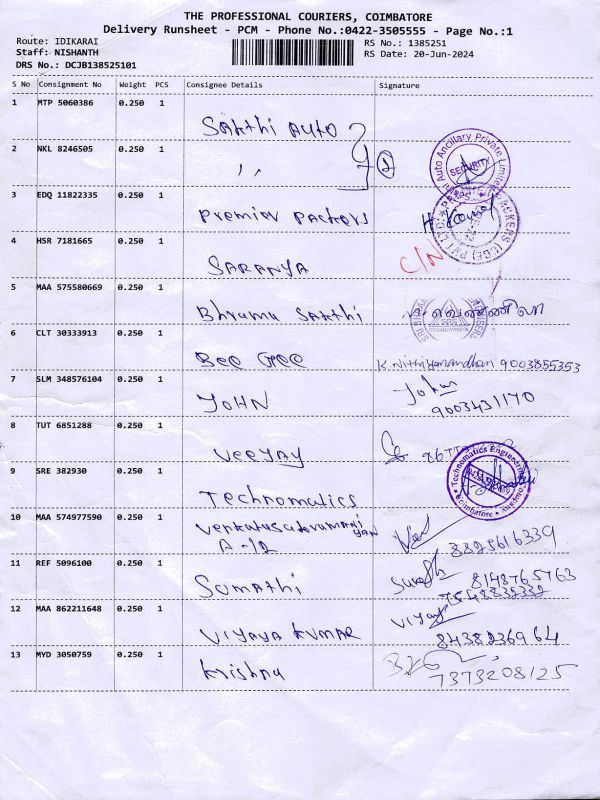 THE PROFESSIONAL COURIERS, COIMBATORE
Delivery Runsheet - PCM - Phone No.:0422-3505555 - Page No.:1
Route: IDIKARAI
RS No.: 1385251
Staff: NISHANTH
RS Date: 20-Jun-2024
DRS No.: DCJB138525101
S No Consignment No Weight PCS Consignee Details Signature
1 MTP 5060386 0.250 1 Sakthi Auto
2 NKL 8246505 0.250 1 ,, 2
Auto Ancillary Private Limited
SECURITY
3 EDQ 11822335 0.250 1 Premier Packers
4 HSR 7181665 0.250 1 SARANYA C/N
5 MAA 575580669 0.250 1 Bhramu Sakthi
6 CLT 30333913 0.250 1 Bee Gee K. Nithiyanandhan 9003855353
7 SLM 348576104 0.250 1 JOHN John
9003431170
8 TUT 6851288 0.250 1 Veejay
9 SRE 382930 0.250 1 Technomatics
Technomatics Engineering
Coimbatore
10 MAA 574977590 0.250 1
A-12
8825616339
11 REF 5096100 0.250 1 Sumathi Suresh 8143765763
12 MAA 862211648 0.250 1 Vijaya Kumar Vijay
8438236964
13 MYD 3050759 0.250 1 Krishna
7373208125